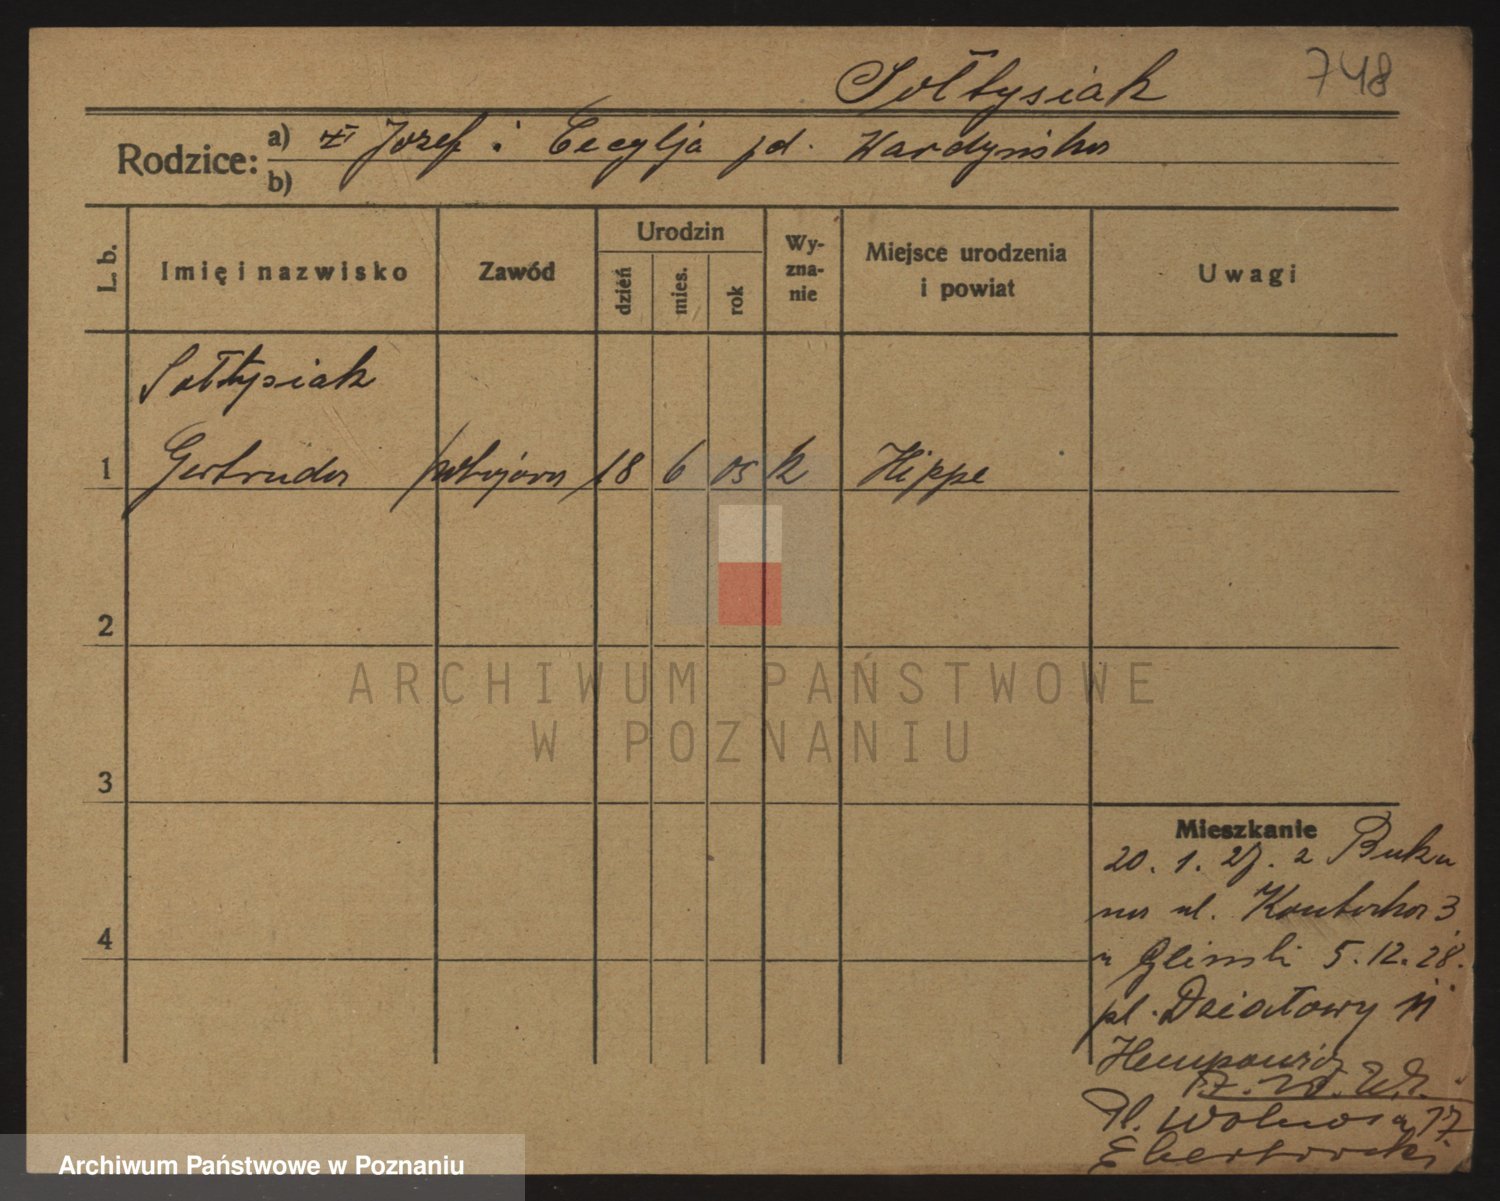 Sołtysiak
748
Rodzice:
a) Józef i Cecylja Wardyńska
b)
L. b.
Imię i nazwisko
Zawód
Urodzin
dzień
mies.
rok
Wy-
zna-
nie
Miejsce urodzenia
i powiat
Uwagi
Sołtysiak
1 Gertruda pokojowa 18 6 05 k Hippe
2
ARCHIWUM PAŃSTWOWE
W POZNANIU
3
4
Mieszkanie
20. 1. 27. z Buku
na ul. Kantaka 3
u Glinski 5.12.28.
pl. Działowy 11
Hempowicz
Pl. Wolności 17
Archiwum Państwowe w Poznaniu